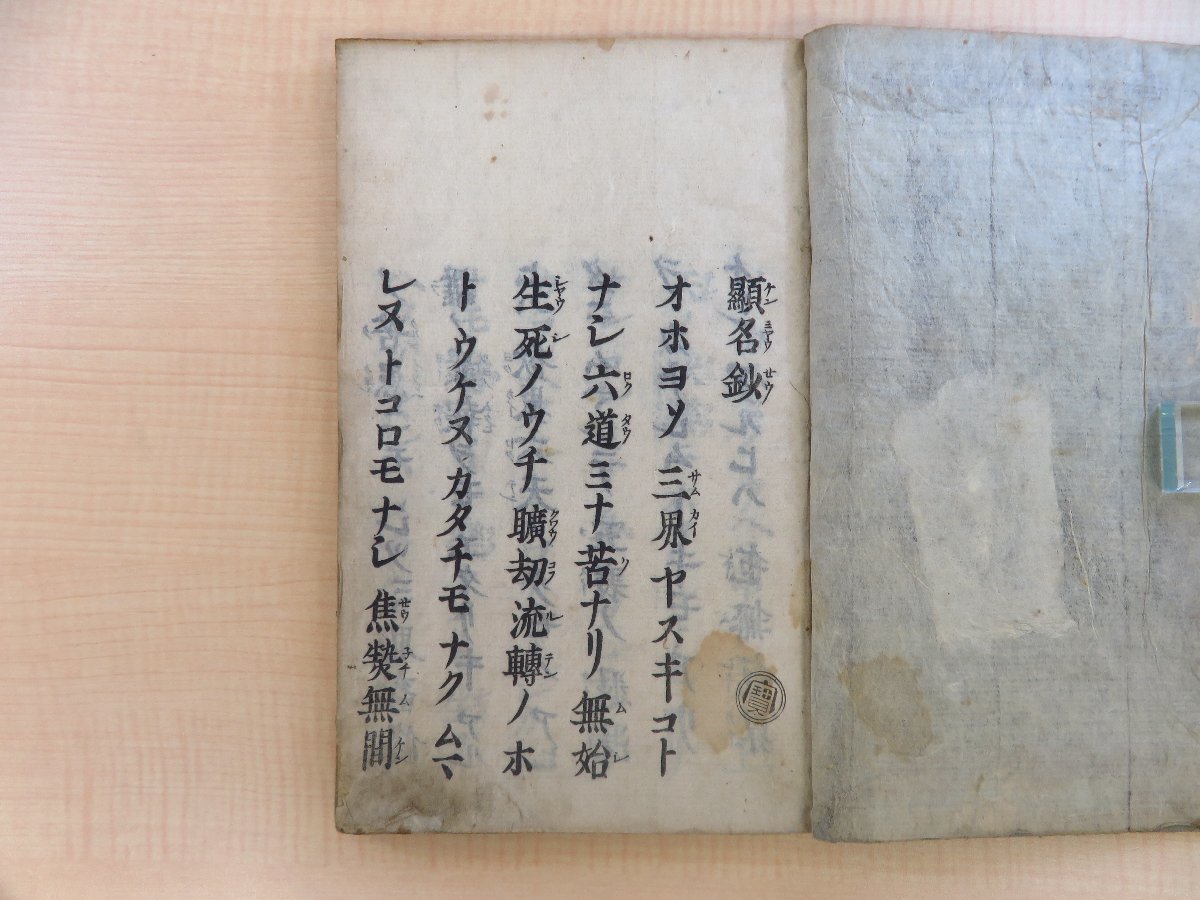 顯名鈔
オホヨソ三界ヤスキコト
ナシ六道ミナ苦ナリ無始
生死ノウチ曠劫流轉ノホ
トウケヌカタチモナクムマ
レヌトコロモナシ焦𤍠無間
寶